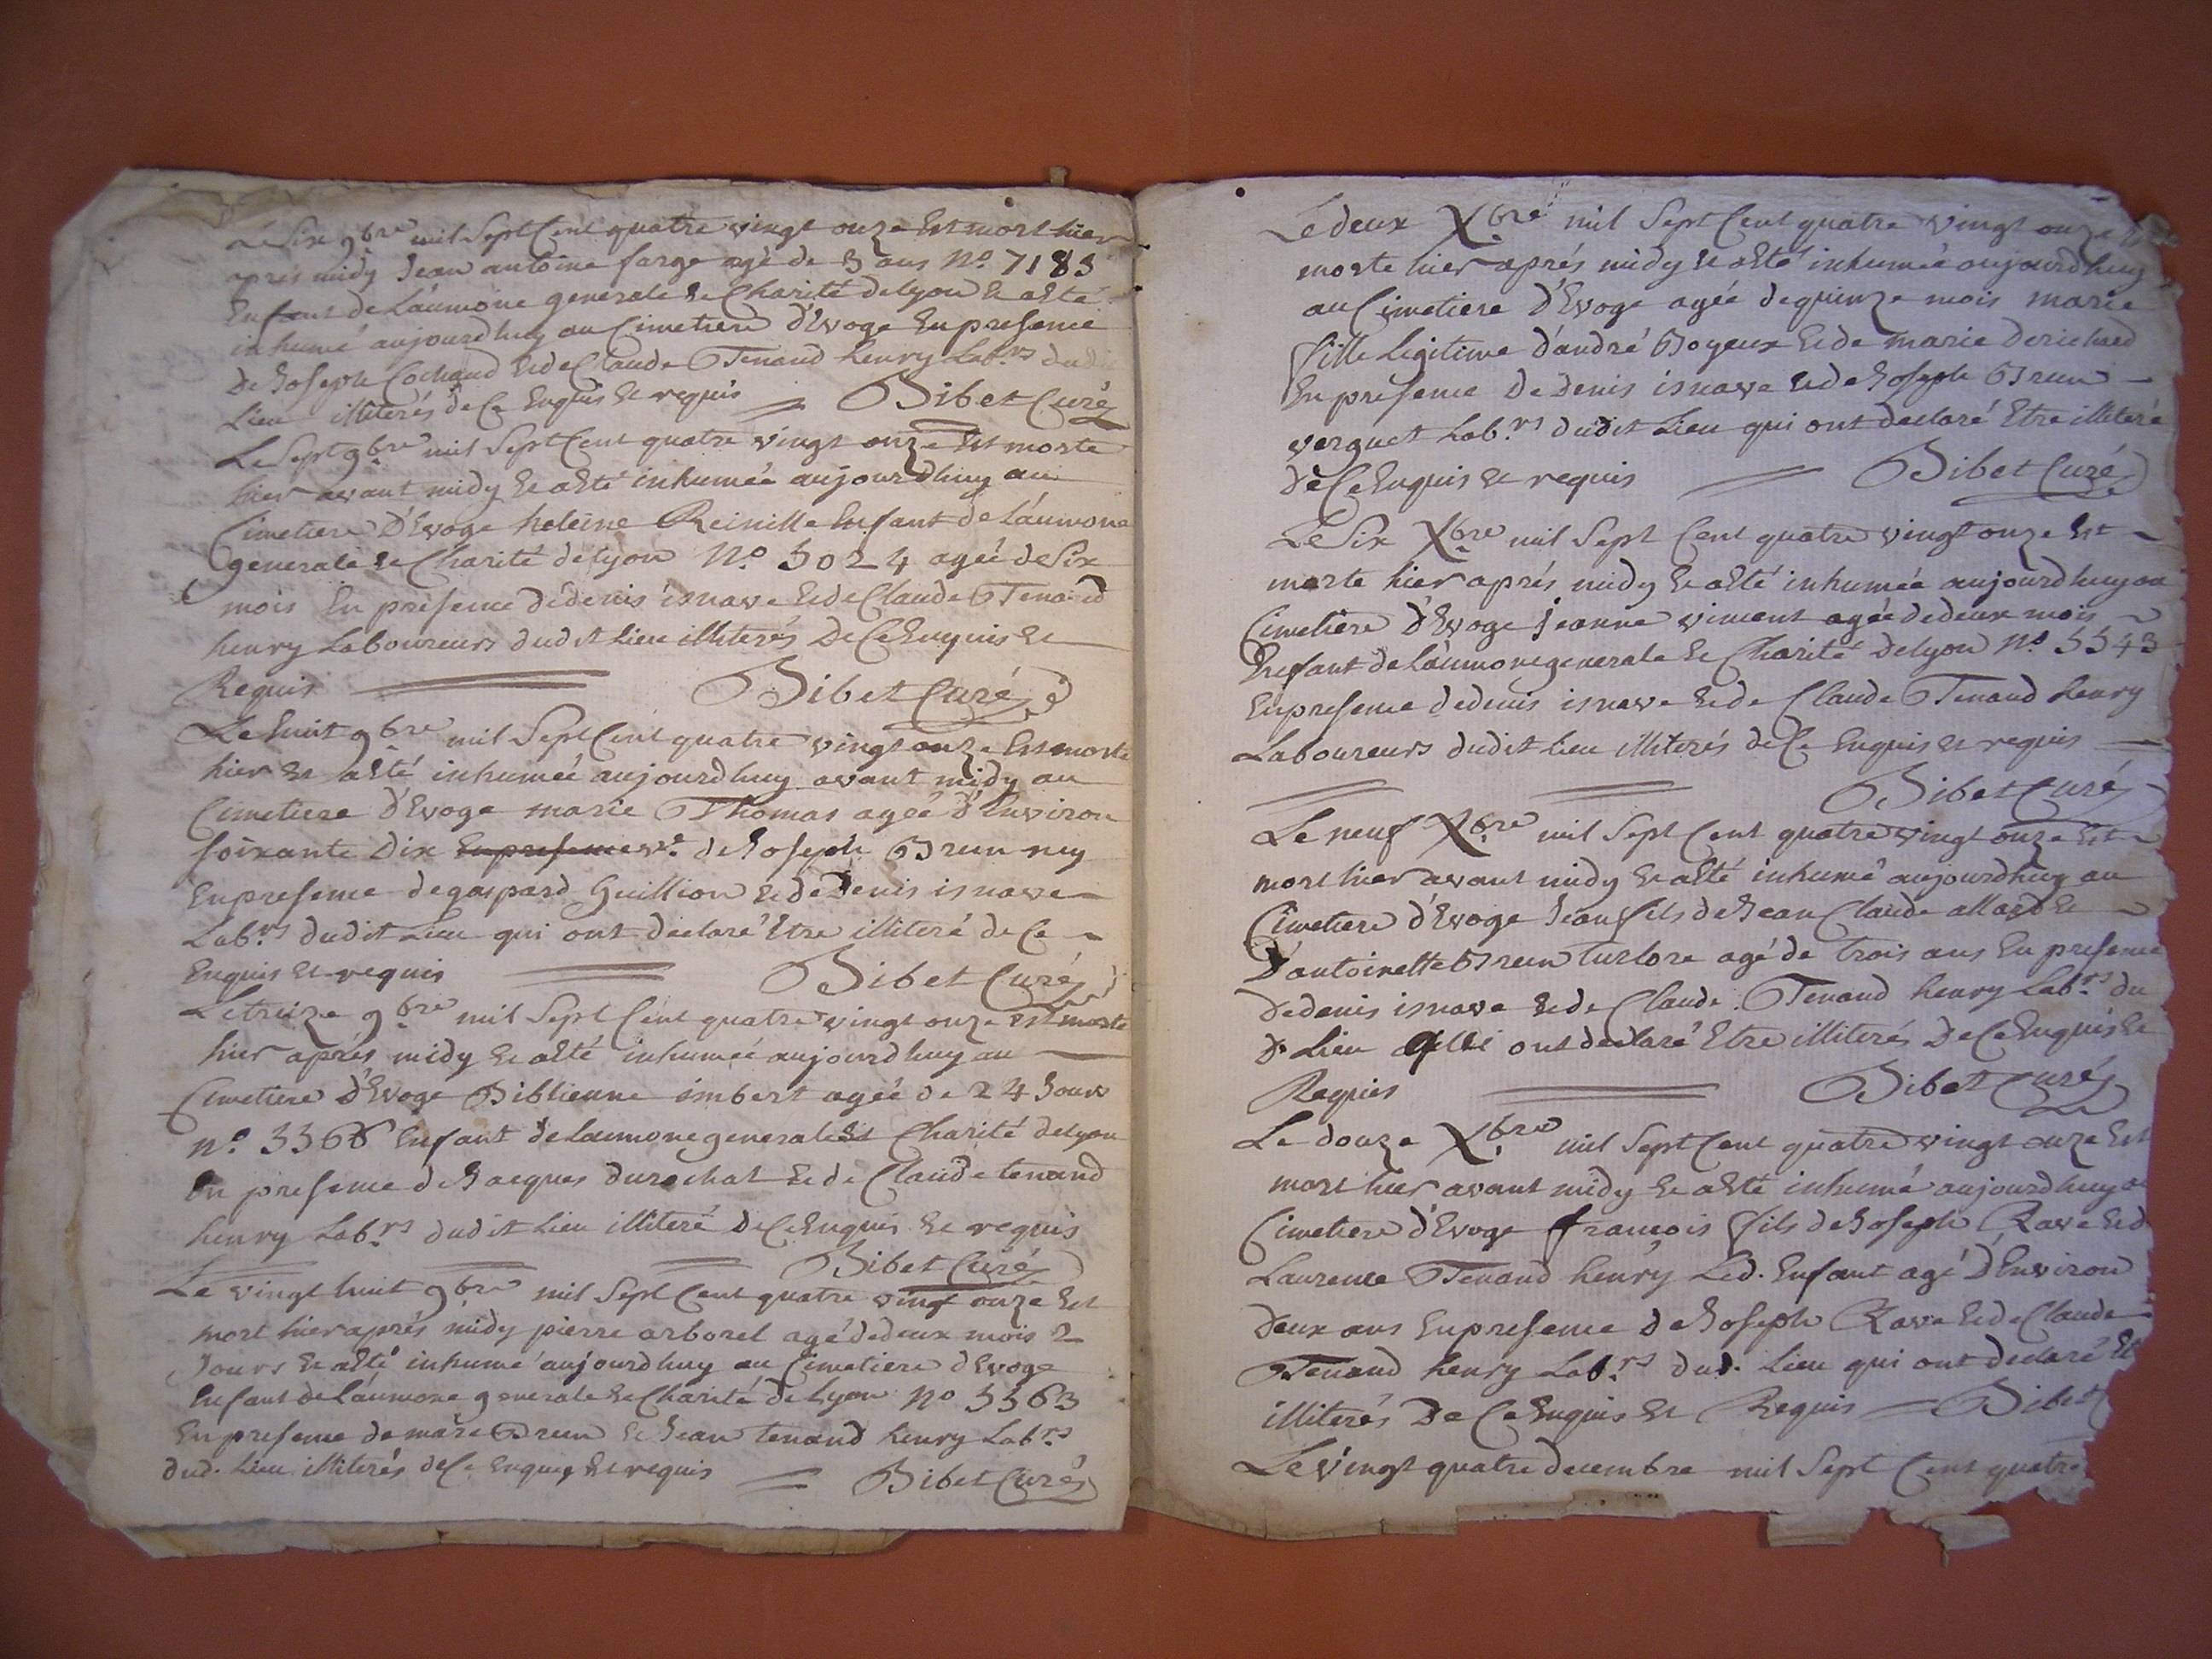 Le Six 9bre mil Sept Cent quatre vingt onze Est mort hier
aprés midy Jean antoine farge agé de 3 ans N.o 7183
Enfant de L'aumône generale Et Charité de Lyon Et a Eté
inhumé aujourd'huy au Cimetiere d'Evoge En presence
De Joseph Cochand Et de Claude Tenand henry Lab.rs dudit
Lieu illiterés de Ce Enquis Et requis Bibet Curé
Le Sept 9bre mil Sept Cent quatre vingt onze Est morte
hier avant midy Et a Eté inhumée aujourd'huy au
Cimetiere D'Evoge heleine Reinille Enfant de L'aumone
generale Et Charité de Lyon N.o 5024 agée de Six
mois En presence de denis isnave Et de Claude Tenand
henry Laboureurs dudit Lieu illiterés De Ce Enquis Et
Requis Bibet Curé
Le huit 9bre mil Sept Cent quatre vingt onze Est morte
hier Et a Eté inhumée aujourdhuy avant midy au
Cimetiere d'Evoge marie Thomas agée d'Environ
soixante Dix En presence v.e de Joseph Brun ney
En presence de gaspard Guillion Et de Denis isnave
Lab.rs dudit Lieu qui ont declaré Etre illiteré de Ce
Enquis Et requis Bibet Curé
Le treize 9bre mil Sept Cent quatre vingt onze Est morte
hier aprés midy Et a Eté inhumée aujourdhuy au
Cimetiere d'Evoge Biblienne imbert agée de 24 Jours
n.o 5366 Enfant de Laumone generale Et Charité de Lyon
En presence de Jacques durochat Et de Claude tenand
henry Lab.rs dudit Lieu illiteré De Ce Enquis Et requis
Bibet Curé
Le vingt huit 9bre mil Sept Cent quatre vingt onze Est
mort hier aprés midy pierre arborel agé de deux mois 2
Jours Et a Eté inhumé aujourdhuy au Cimetiere d'Evoge
Enfant de L'aumone generale Et Charité de Lyon No 5363
En presence de Brun Et Jean tenand henry Lab.rs
dud. Lieu illiterés de Ce Enquis Et requis Bibet Curé
Le deux Xbre mil Sept Cent quatre vingt onze
morte hier aprés midy Et a Eté inhumée aujourdhuy
au Cimetiere d'Evoge agée de quinze mois marie
fille Legitime d'andré Joyeux Et de marie derichard
En presence De Denis isnave Et de Joseph Brun
verguet Lab.rs dudit Lieu qui ont declaré Etre illiteré
de Ce Enquis Et requis Bibet Curé
Le Six Xbre mil Sept Cent quatre vingt onze Est
morte hier aprés midy Et a Eté inhumée aujourdhuy au
Cimetiere d'Evoge Jeanne vincent agée de deux mois
Enfant de L'aumone generale Et Charité de Lyon N.o 5343
En presence de denis isnave Et de Claude Tenand henry
Laboureurs dudit Lieu illiterés de Ce Enquis Et requis
Bibet Curé
Le neuf Xbre mil Sept Cent quatre vingt onze Est
mort hier avant midy Et a Eté inhumé aujourdhuy au
Cimetiere d'Evoge Jean fils de Jean Claude allard Et
D'antoinette Brun turlore agé de trois ans En presence
De denis isnave Et de Claude Tenand henry Lab.rs du
d. Lieu qui ont declaré Etre illiterés De Ce Enquis Et
Requis Bibet Curé
Le douze Xbre mil Sept Cent quatre vingt onze Est
mort hier avant midy Et a Eté inhumé aujourdhuy au
Cimetiere d'Evoge francois fils de Joseph Rave Et d
Laurence Tenand henry Led. Enfant agé d'Environ
Deux ans En presence De Joseph Rave Et de Claude
Tenand henry Lab.rs dud. Lieu qui ont declaré Et
illiterés De Ce Enquis Et Requis Bibet
Le vingt quatre decembre mil Sept Cent quatre